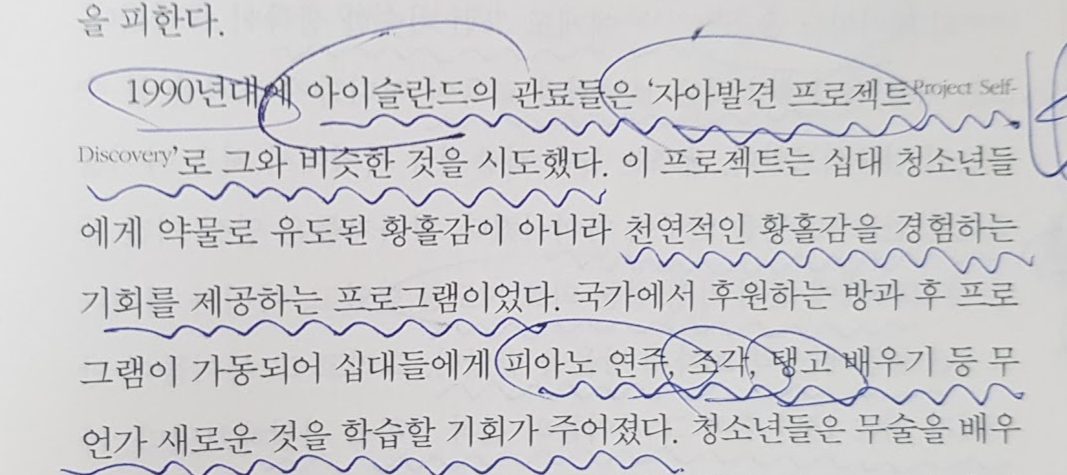 을 피한다.
1990년대에 아이슬란드의 관료들은 ‘자아발견 프로젝트Project Self-
Discovery’로 그와 비슷한 것을 시도했다. 이 프로젝트는 십대 청소년들
에게 약물로 유도된 황홀감이 아니라 천연적인 황홀감을 경험하는
기회를 제공하는 프로그램이었다. 국가에서 후원하는 방과 후 프로
그램이 가동되어 십대들에게 피아노 연주, 조각, 탱고 배우기 등 무
언가 새로운 것을 학습할 기회가 주어졌다. 청소년들은 무술을 배우